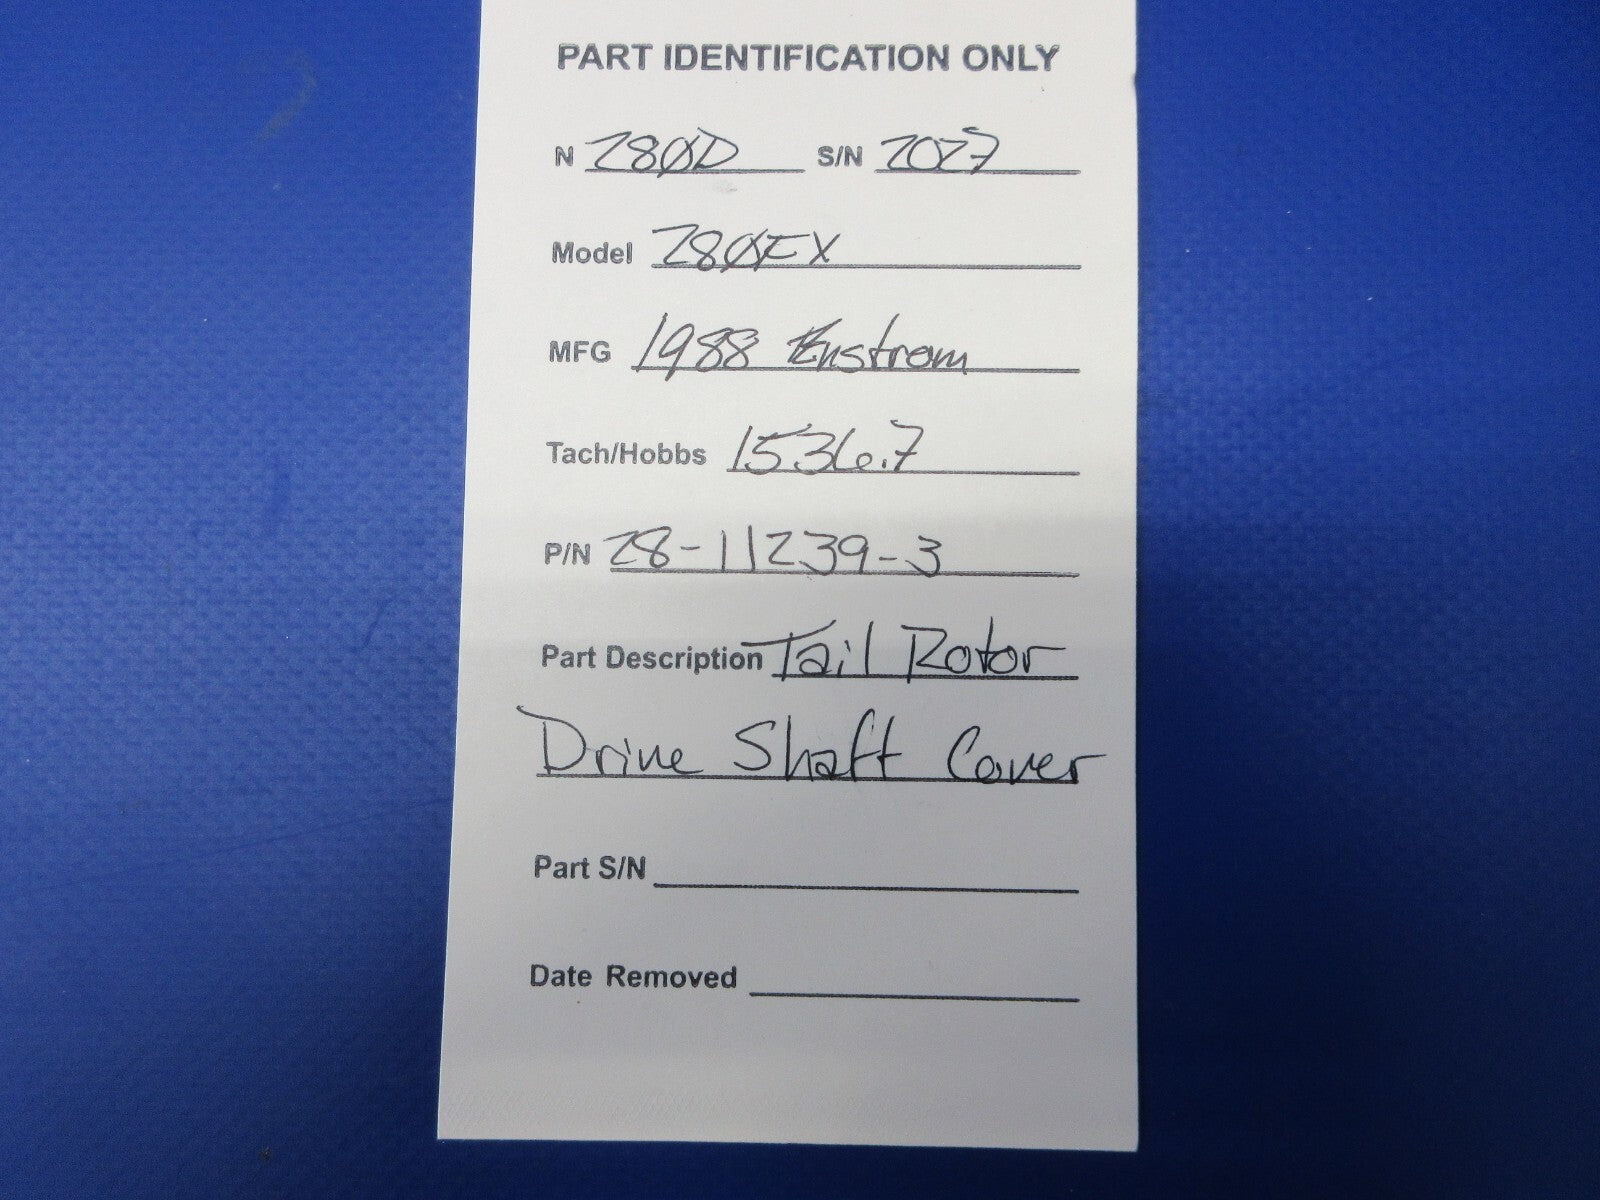 PART IDENTIFICATION ONLY
N 280D S/N 2027
Model 280FX
MFG 1988 Enstrom
Tach/Hobbs 1536.7
P/N 28-11239-3
Part Description Tail Rotor
Drive Shaft Cover
Part S/N
Date Removed